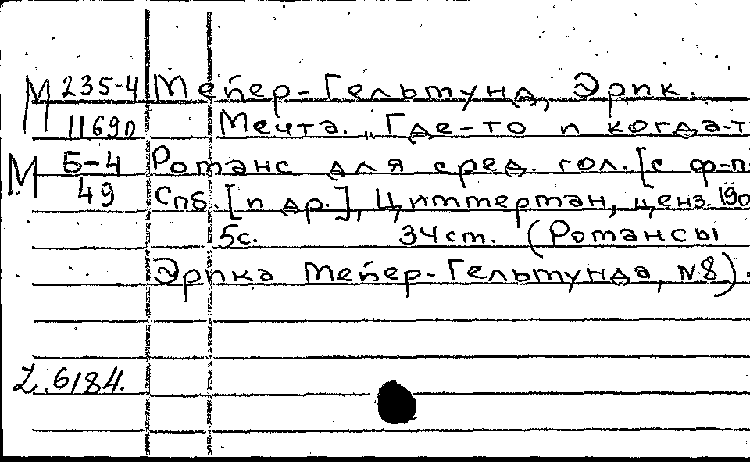 М 235-4 Мейер-Гельмунд, Эрик.
11690 Мечта. „Где-то и когда-т
М Б-4 Романс для сред. гол. [с ф-п
49 Спб. [и др.], Циммерман, ценз. 190
5с. 34см. (Романсы
Эрика Мейер-Гельмунда, №8).
Z.6184.